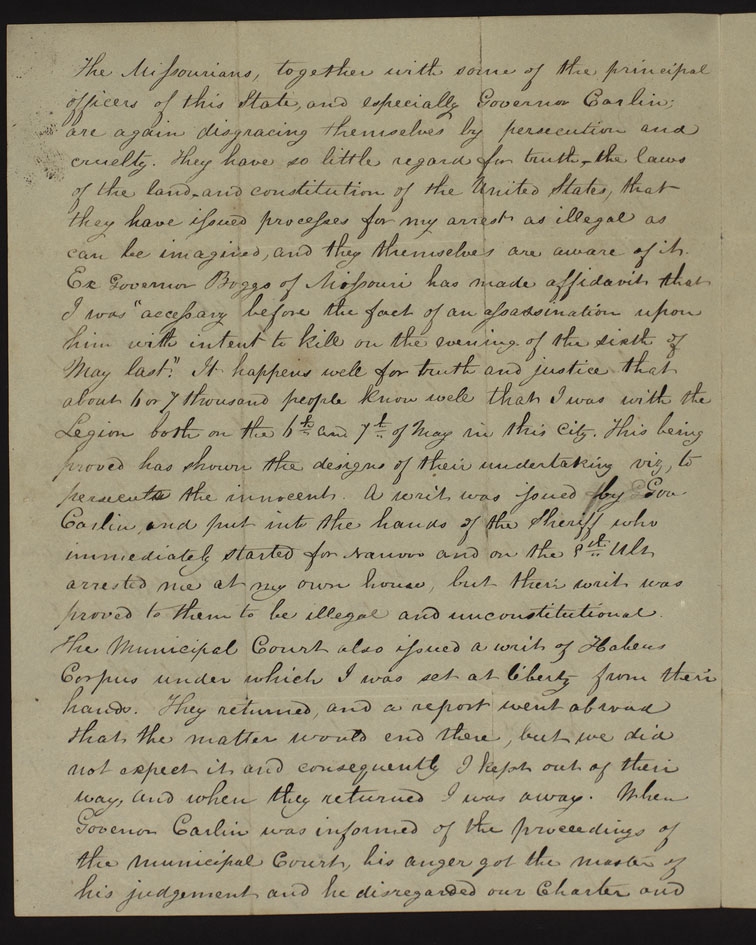 The Missourians, together with some of the principal
officers of this State, and especially Governor Carlin;
are again disgracing themselves by persecution and
cruelty. They have so little regard for truth - the laws
of the land - and constitution of the United States, that
they have issued processes for my arrest as illegal as
can be imagined, and they themselves are aware of it.
Ex Governor Boggs of Missouri has made affidavit that
I was "accessary before the fact of an assassination upon
him with intent to kill on the evening of the sixth of
May last". It happens well for truth and justice that
about 6 or 7 thousand people know well that I was with the
Legion both on the 6th and 7th of May in this city. This being
proved has shown the designs of their undertaking viz, to
persecute the innocent. A writ was issued by Gov
Carlin, and put into the hands of the Sheriff who
immediately started for Nauvoo and on the 8th Ult
arrested me at my own house, but their writ was
proved to them to be illegal and unconstitutional.
The Municipal Court also issued a writ of Habeus
Corpus under which I was set at liberty from their
hands. They returned, and a report went abroad
that the matter would end there, but we did
not expect it and consequently I kept out of their
way, and when they returned I was away. When
Govenor Carlin was informed of the proceedings of
the Municipal Court, his anger got the master of
his judgement and he disregarded our Charter and